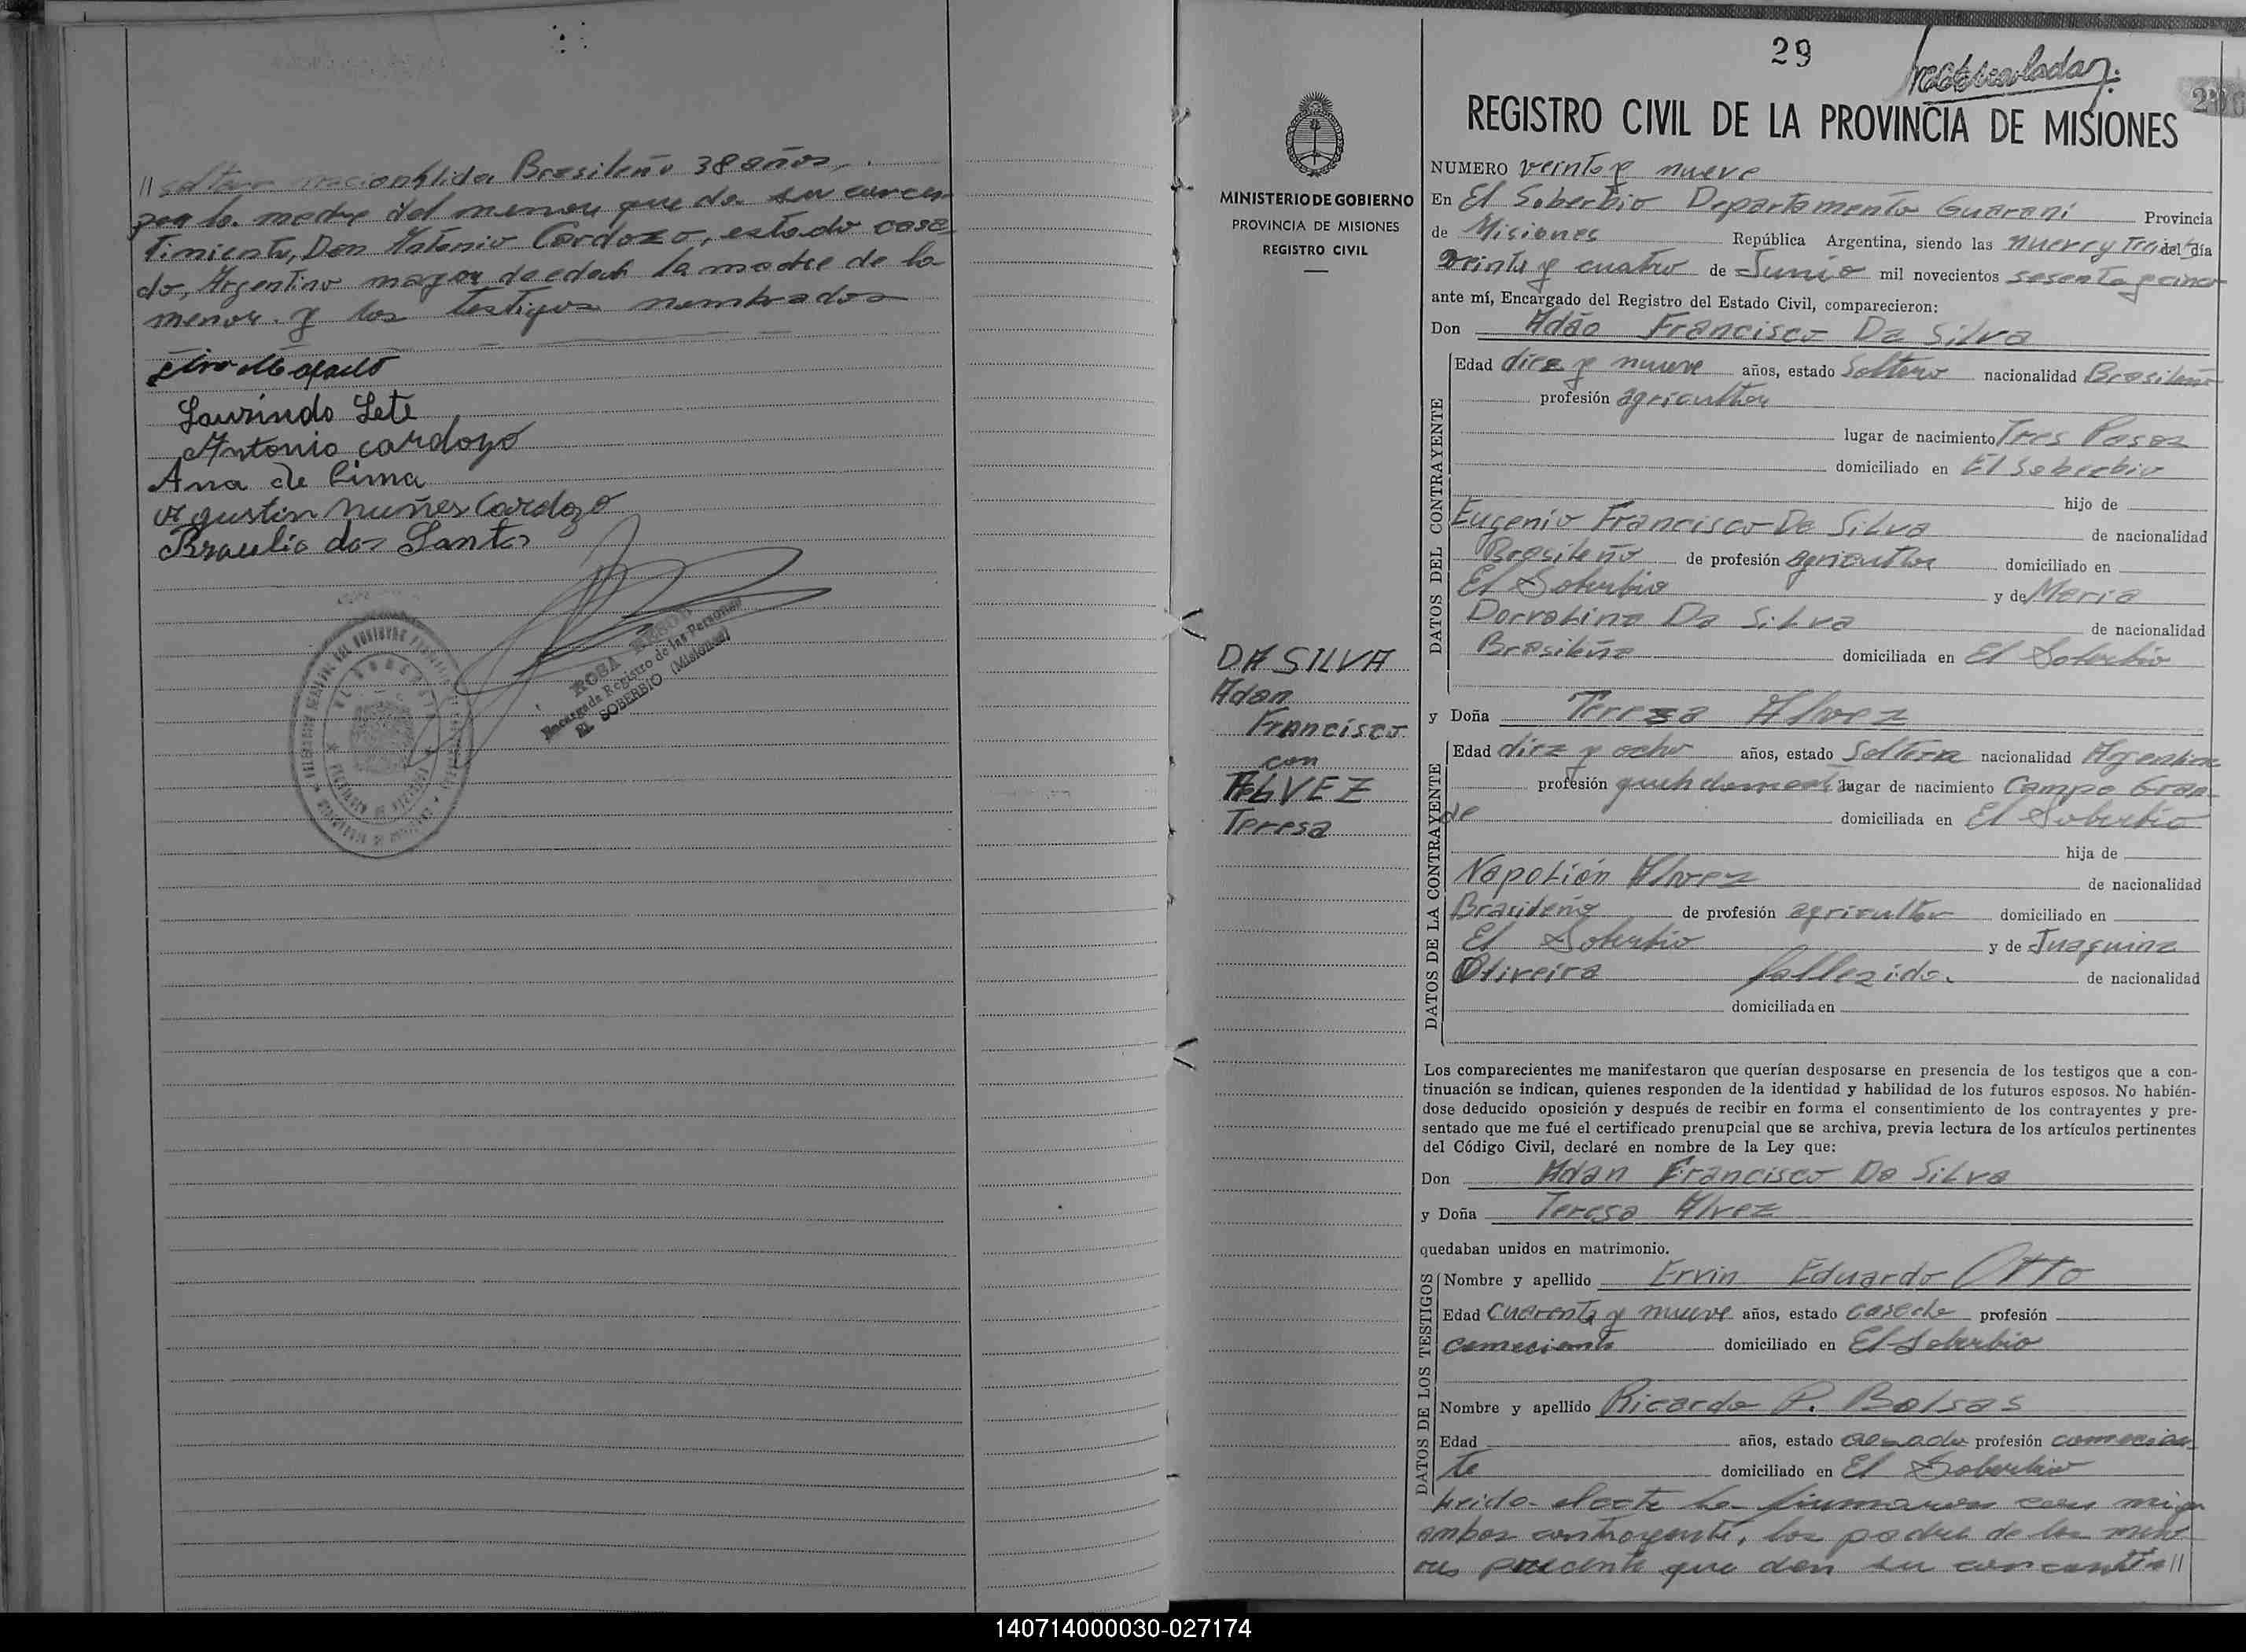 // soltera nacionalida Brasileño 38 años
por la medre del menor que da su concen
timiento, Don Antonio Cardozo, estado casa
do, Argentino mayor de edad la madre de la
menor y los testigos nombrados
Laurindo Lete
Antonio cardozo
Ana de lima
Agustin Nuñes Cardozo
Braulio dos Santos
ROSA
Encargada Registro de las Personas
EL SOBERBIO (Misiones)
29
REGISTRO CIVIL DE LA PROVINCIA DE MISIONES
MINISTERIO DE GOBIERNO
PROVINCIA DE MISIONES
REGISTRO CIVIL
DA SILVA
Adan
Francisco
con
ALVEZ
Teresa
NUMERO veinte y nueve
En El Soberbio Departamento Guarani Provincia
de Misiones República Argentina, siendo las nuerv y Trei del día
Veinte y cuatro de Junio mil novecientos sesenta y cinco
ante mí, Encargado del Registro del Estado Civil, comparecieron:
Don Adão Francisco Da Silva
DATOS DEL CONTRAYENTE
Edad diez y nueve años, estado Soltero nacionalidad Brasileño
profesión agricultor
lugar de nacimiento Tres Pasos
domiciliado en El Soberbio
hijo de
Eugenio Francisco Da Silva de nacionalidad
Brasileño de profesión agricultor domiciliado en
El Soberbio y de Maria
Dorvalina Da Silva de nacionalidad
Brasileña domiciliada en El Soberbio
y Doña Teresa Alvez
DATOS DE LA CONTRAYENTE
Edad diez y ocho años, estado Soltera nacionalidad Argentina
profesión lugar de nacimiento Campo Gran-
de domiciliada en El Soberbio
hija de
Napolión Alvez de nacionalidad
Brasileño de profesión agricultor domiciliado en
El Soberbio y de Juaquina
Oliveira fallezida de nacionalidad
domiciliada en
Los comparecientes me manifestaron que querían desposarse en presencia de los testigos que a con-
tinuación se indican, quienes responden de la identidad y habilidad de los futuros esposos. No habién-
dose deducido oposición y después de recibir en forma el consentimiento de los contrayentes y pre-
sentado que me fué el certificado prenupcial que se archiva, previa lectura de los artículos pertinentes
del Código Civil, declaré en nombre de la Ley que:
Don Adan Francisco Da Silva
y Doña Teresa Alvez
quedaban unidos en matrimonio.
DATOS DE LOS TESTIGOS
Nombre y apellido Ervin Eduardo Otto
Edad cuarenta y nueve años, estado casado profesión
comeciante domiciliado en El Soberbio
Nombre y apellido Ricardo P. Bolsas
Edad años, estado casado profesión comecian-
te domiciliado en El Soberbio
leido el acta la firmaron con migo
ambos contrayente, los padre de los meno
res precente que dan su concenti //
140714000030-027174